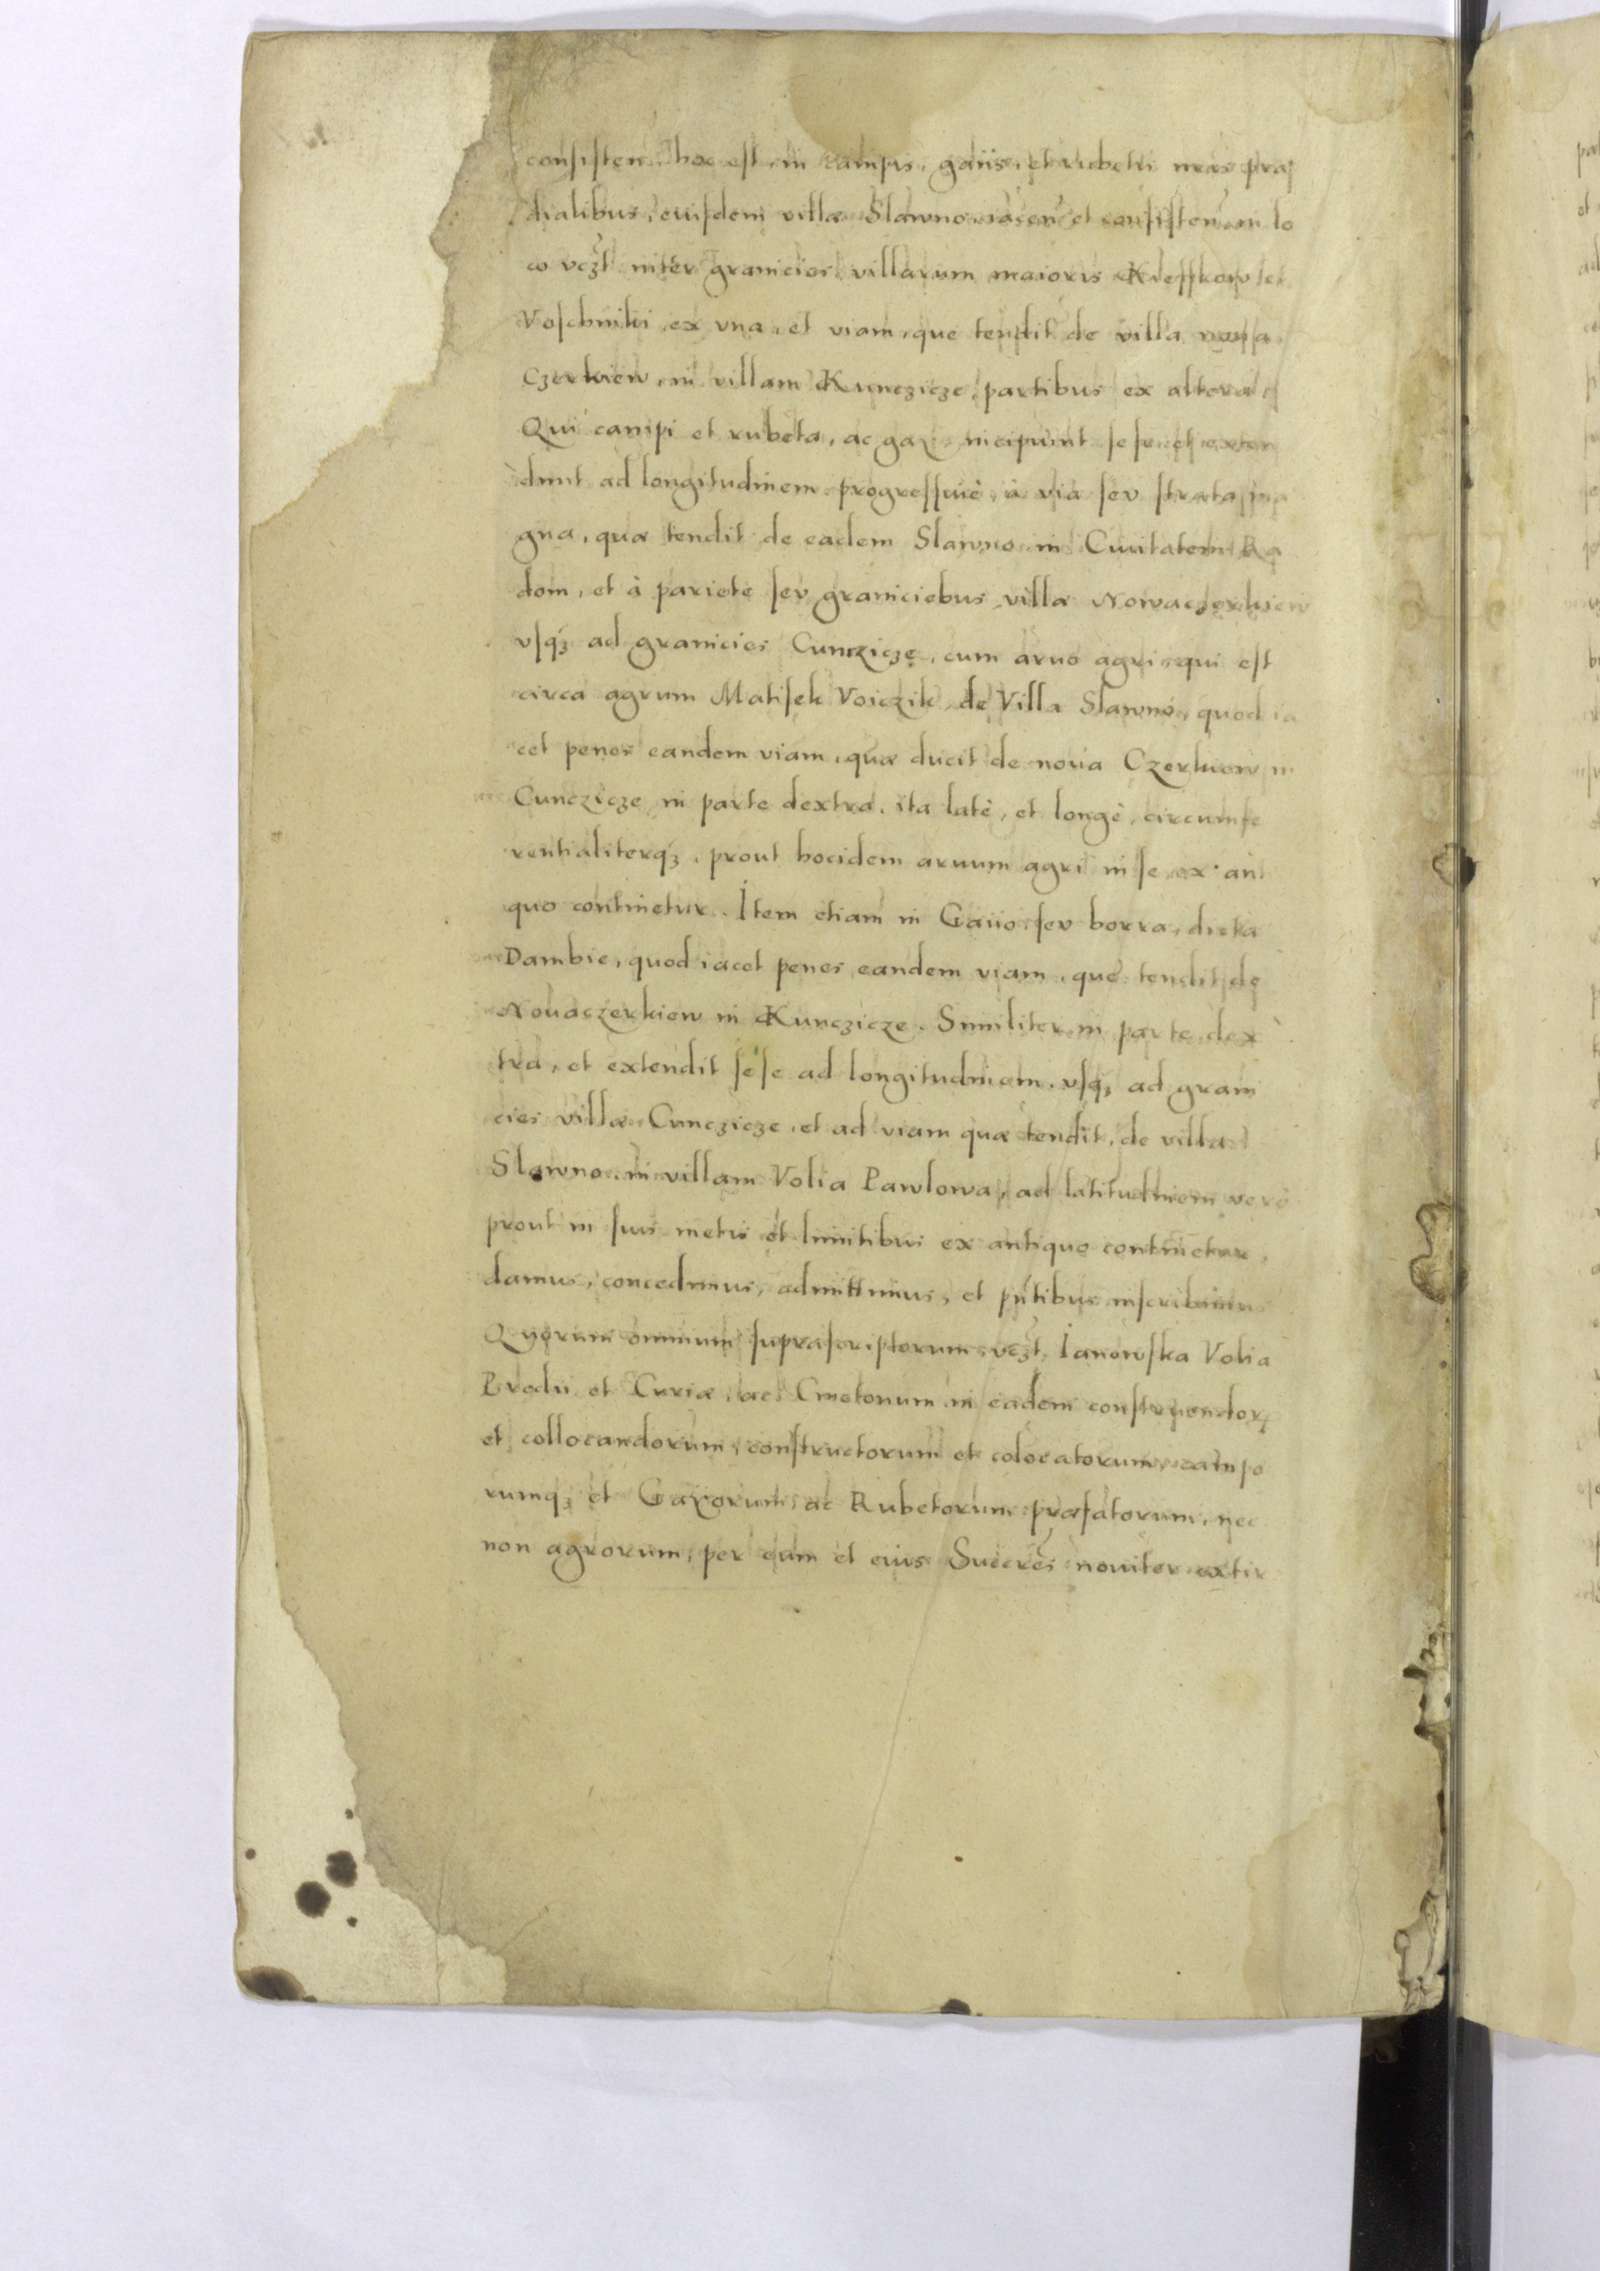 consisten. hoc est in campis, gaiis, et rubetis nr̃is præ
dialibus, eiusdem villæ Slawno, iacen̄ et consisten̄, in lo
co vczt inter granicies villarum maioris Kleffkow et
Voschniki ex vna, et viam, que tendit de villa noua
Czerkiew, in villam Kunczicze, partibus ex altera
Qui campi et rubeta, ac gai incipiunt sese et exten
dunt ad longitudinem progressiuè, à via sev strata ma
gna, quæ tendit de eadem Slawno in Ciuitatem Ra
dom, et à pariete sev graniciebus villæ Nowaczerkiew
vsq3 ad granicies Cunczicze, cum aruo agri, qui est
circa agrum Matisek Voiczik, de Villa Slawno, quod ia
cet penes eandem viam, quæ ducit de noua Czerkiew in
Cunczicze in parte dextra, ita latè, et longè, circumfe
rentialiterq3, prout hocidem aruum agri in se ex anti
quo continetur. Item etiam in Gaiio sev borra, dicta
Dambie, quod iacet penes eandem viam, que tendit de
Nouaczerkiew in Kunczicze. Similiter in parte dex
tra, et extendit sese ad longitudinem, vsq3 ad grani
cies villæ Cunczicze, et ad viam quæ tendit, de villa
Slawno, in villam Volia Pawlowa, ad latitudinem verò
prout in suis metis et limitibus ex antiquo continetur,
damus, concedimus, admittimus, et pn̄tibus inscribimus
Quorum omnium suprascriptorum, vczt Ianowska Volia
Prædii et Curiæ, ac Cmetonum in eadem construendor
et collocandorum, constructorum et colocatorum, campo
rumq3 et Gayorum, ac Rubetorum præfatorum, nec
non agrorum, per eum et eius Succr̄es nouiter extir